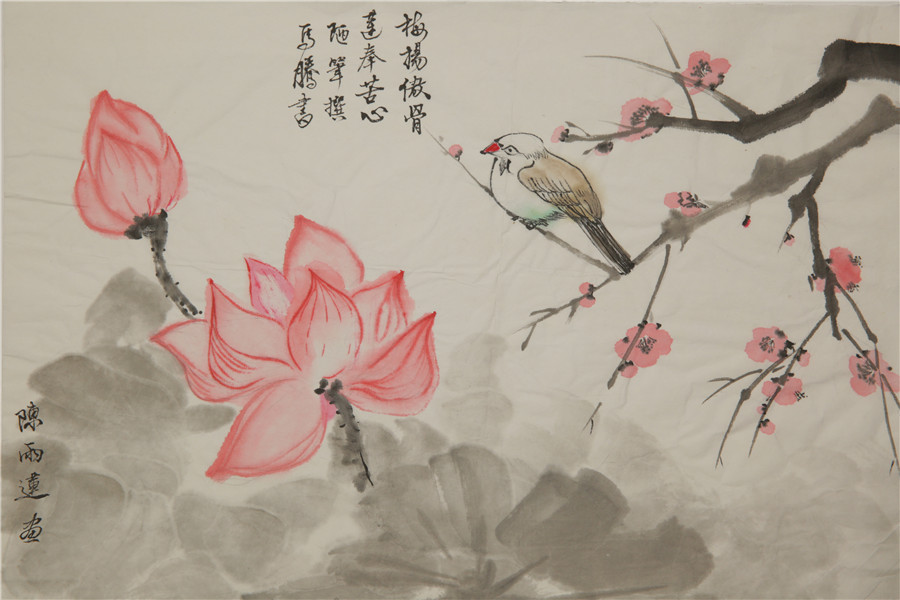 梅扬傲骨
莲奉苦心
陋筆撰
馬騰書
陳雨蓮画